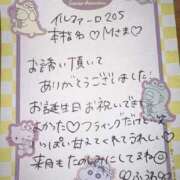 イルファーロ205
本指名♡Mさま♡
お誘い頂いて
ありがとうございました!
お誕生日お祝いできて
よかった♡フライングだけどいっ
ぱい甘えてくれてうれしい♡
来月もたのしみにしてるね☺
ふうな♡